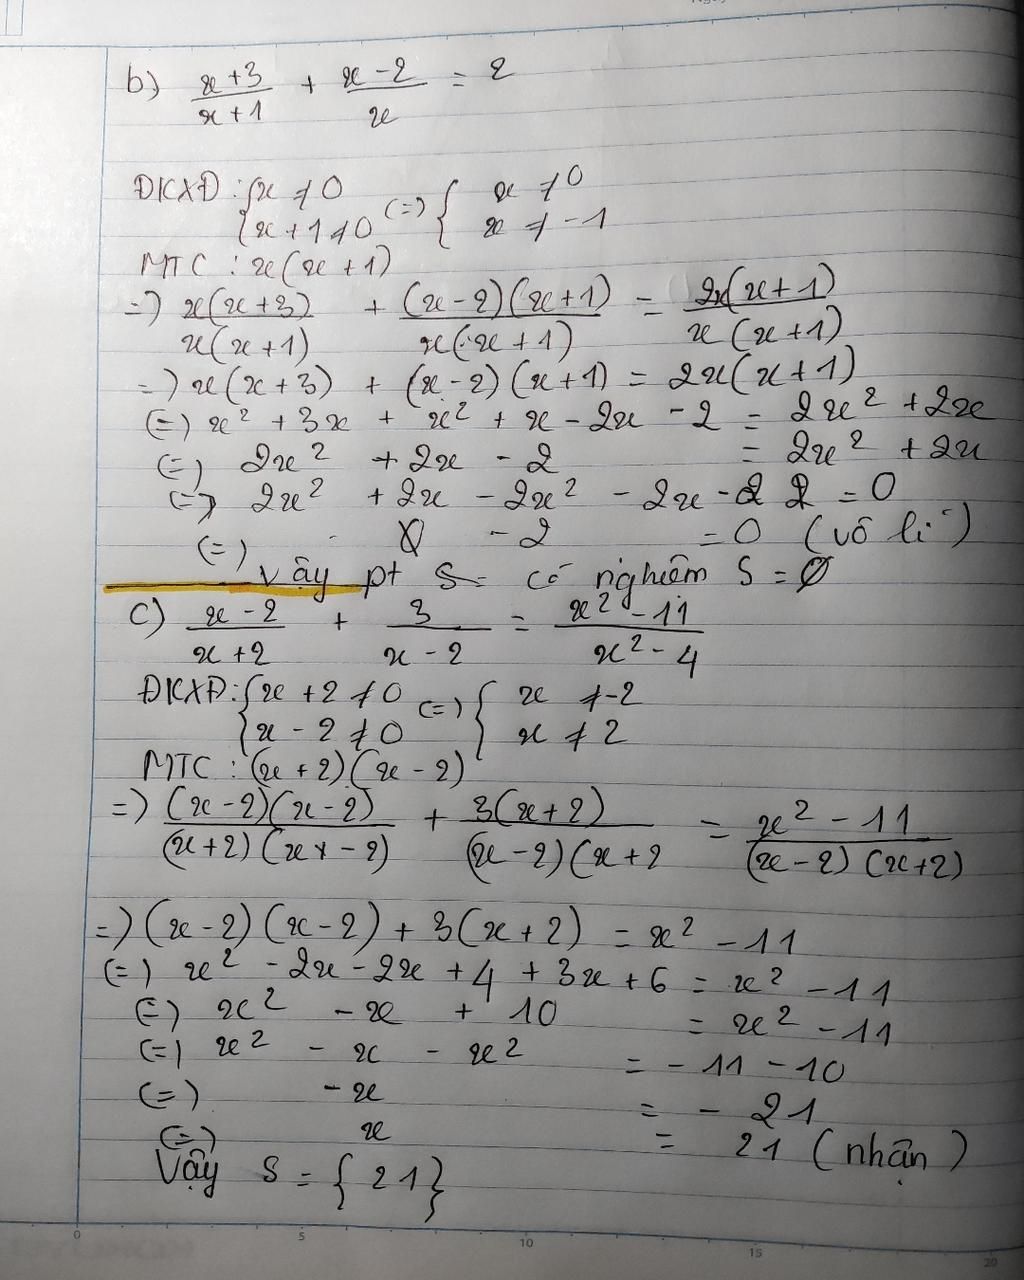 b) (x+3)/(x+1) + (x-2)/x = 2
ĐKXĐ: { x ≠ 0 (=) { x ≠ 0
{ x+1 ≠ 0 { x ≠ -1
MTC : x(x+1)
=) x(x+3)/x(x+1) + (x-2)(x+1)/x(x+1) = 2x(x+1)/x(x+1)
=) x(x+3) + (x-2)(x+1) = 2x(x+1)
(=) x² + 3x + x² + x - 2x - 2 = 2x² + 2x
(=) 2x² + 2x - 2 = 2x² + 2x
(=) 2x² + 2x - 2x² - 2x - 2 = 0
(=) 0 - 2 = 0 (vô lí)
Vậy pt S= có nghiệm S = ∅
c) (x-2)/(x+2) + 3/(x-2) = (x²-11)/(x²-4)
ĐKXĐ: { x+2 ≠ 0 (=) { x ≠ -2
{ x-2 ≠ 0 { x ≠ 2
MTC : (x+2)(x-2)
=) (x-2)(x-2)/(x+2)(x-2) + 3(x+2)/(x-2)(x+2 = x²-11/(x-2)(x+2)
=) (x-2)(x-2) + 3(x+2) = x² - 11
(=) x² - 2x - 2x + 4 + 3x + 6 = x² - 11
(=) x² - x + 10 = x² - 11
(=) x² - x - x² = -11 - 10
(=) -x = -21
(=) x = 21 (nhận)
Vậy S = {21}
0 5 10 15 20